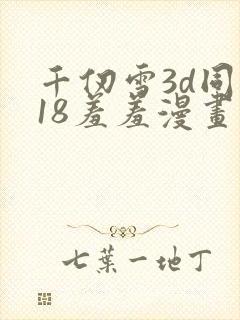 千仞雪3d同
18羞羞漫畫
七葉一地丁